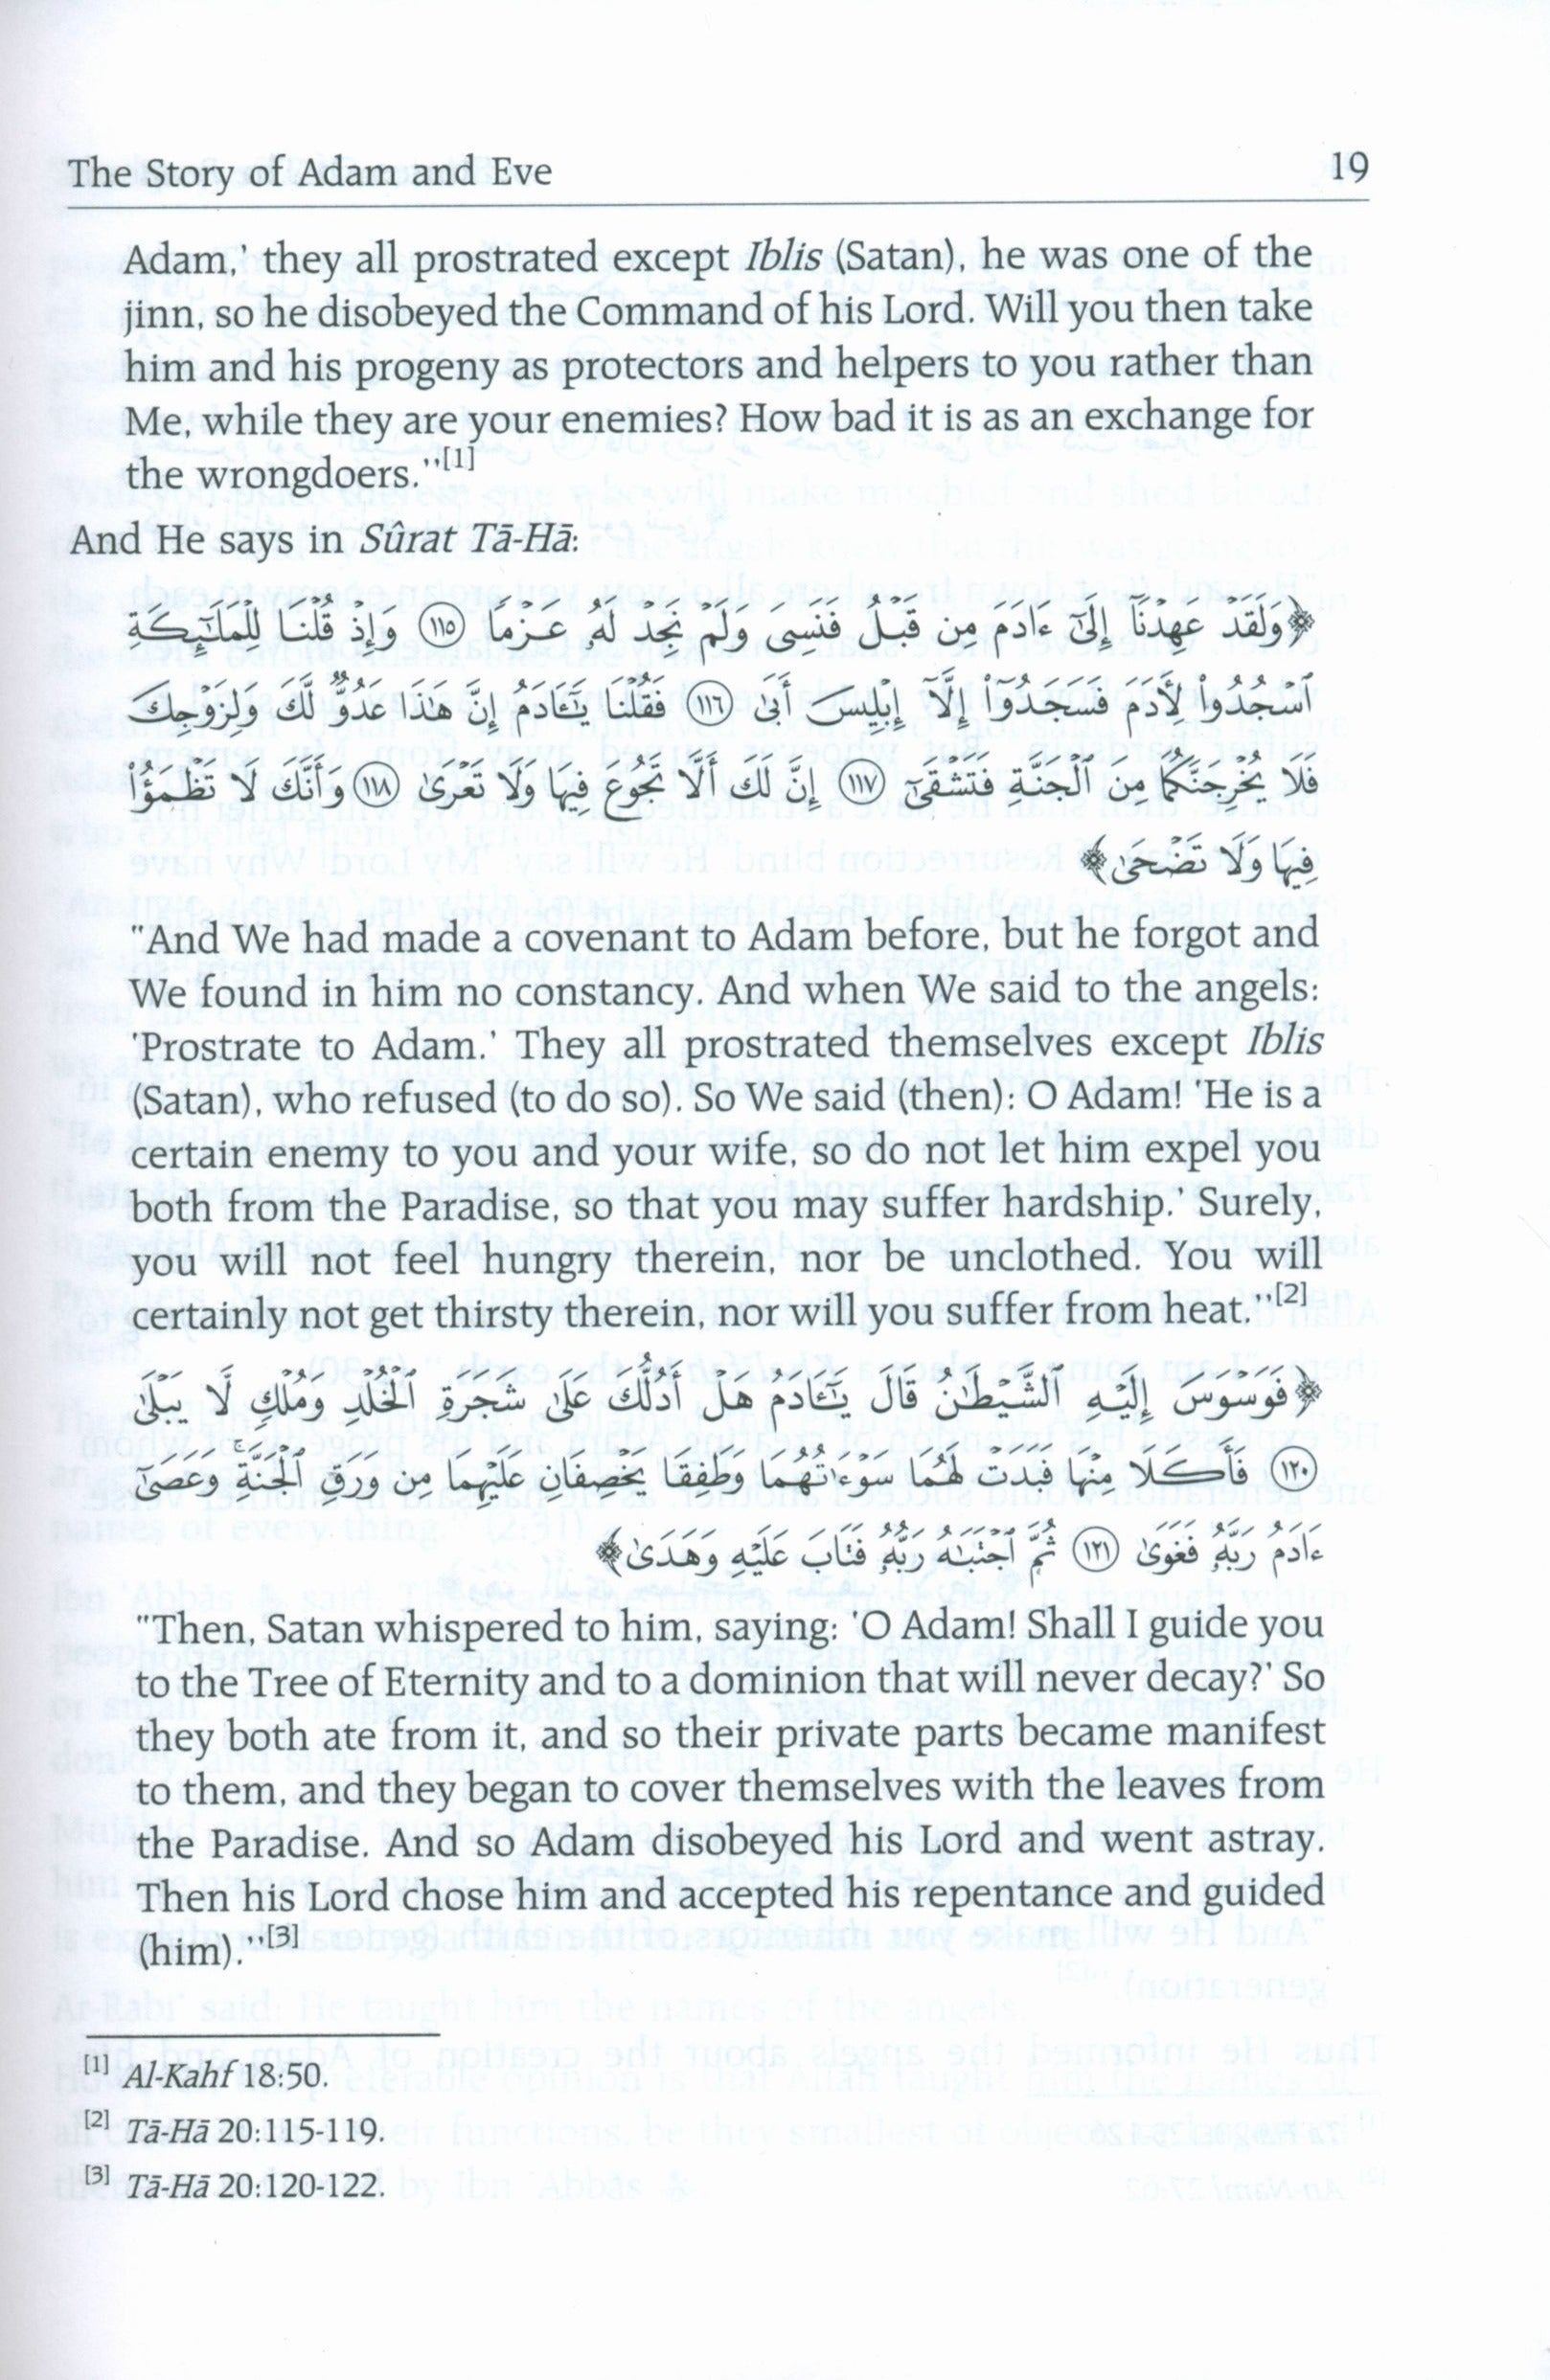 The Story of Adam and Eve 19
Adam,' they all prostrated except Iblis (Satan), he was one of the
jinn, so he disobeyed the Command of his Lord. Will you then take
him and his progeny as protectors and helpers to you rather than
Me, while they are your enemies? How bad it is as an exchange for
the wrongdoers."[1]
And He says in Sûrat Tā-Hā:
﴿وَلَقَدْ عَهِدْنَآ إِلَىٰٓ ءَادَمَ مِن قَبْلُ فَنَسِىَ وَلَمْ نَجِدْ لَهُۥ عَزْمًا ﴿١١٥﴾ وَإِذْ قُلْنَا لِلْمَلَـٰٓئِكَةِ
ٱسْجُدُوا۟ لِـَٔادَمَ فَسَجَدُوٓا۟ إِلَّآ إِبْلِيسَ أَبَىٰ ﴿١١٦﴾ فَقُلْنَا يَـٰٓـَٔادَمُ إِنَّ هَـٰذَا عَدُوٌّ لَّكَ وَلِزَوْجِكَ
فَلَا يُخْرِجَنَّكُمَا مِنَ ٱلْجَنَّةِ فَتَشْقَىٰٓ ﴿١١٧﴾ إِنَّ لَكَ أَلَّا تَجُوعَ فِيهَا وَلَا تَعْرَىٰ ﴿١١٨﴾ وَأَنَّكَ لَا تَظْمَؤُا۟
فِيهَا وَلَا تَضْحَىٰ﴾
"And We had made a covenant to Adam before, but he forgot and
We found in him no constancy. And when We said to the angels:
'Prostrate to Adam.' They all prostrated themselves except Iblis
(Satan), who refused (to do so). So We said (then): O Adam! 'He is a
certain enemy to you and your wife, so do not let him expel you
both from the Paradise, so that you may suffer hardship.' Surely,
you will not feel hungry therein, nor be unclothed. You will
certainly not get thirsty therein, nor will you suffer from heat."[2]
﴿فَوَسْوَسَ إِلَيْهِ ٱلشَّيْطَـٰنُ قَالَ يَـٰٓـَٔادَمُ هَلْ أَدُلُّكَ عَلَىٰ شَجَرَةِ ٱلْخُلْدِ وَمُلْكٍ لَّا يَبْلَىٰ
﴿١٢٠﴾ فَأَكَلَا مِنْهَا فَبَدَتْ لَهُمَا سَوْءَٰتُهُمَا وَطَفِقَا يَخْصِفَانِ عَلَيْهِمَا مِن وَرَقِ ٱلْجَنَّةِ ۚ وَعَصَىٰٓ
ءَادَمُ رَبَّهُۥ فَغَوَىٰ ﴿١٢١﴾ ثُمَّ ٱجْتَبَـٰهُ رَبُّهُۥ فَتَابَ عَلَيْهِ وَهَدَىٰ﴾
"Then, Satan whispered to him, saying: 'O Adam! Shall I guide you
to the Tree of Eternity and to a dominion that will never decay?' So
they both ate from it, and so their private parts became manifest
to them, and they began to cover themselves with the leaves from
the Paradise. And so Adam disobeyed his Lord and went astray.
Then his Lord chose him and accepted his repentance and guided
(him)."[3]
[1] Al-Kahf 18:50.
[2] Tā-Hā 20:115-119.
[3] Tā-Hā 20:120-122.